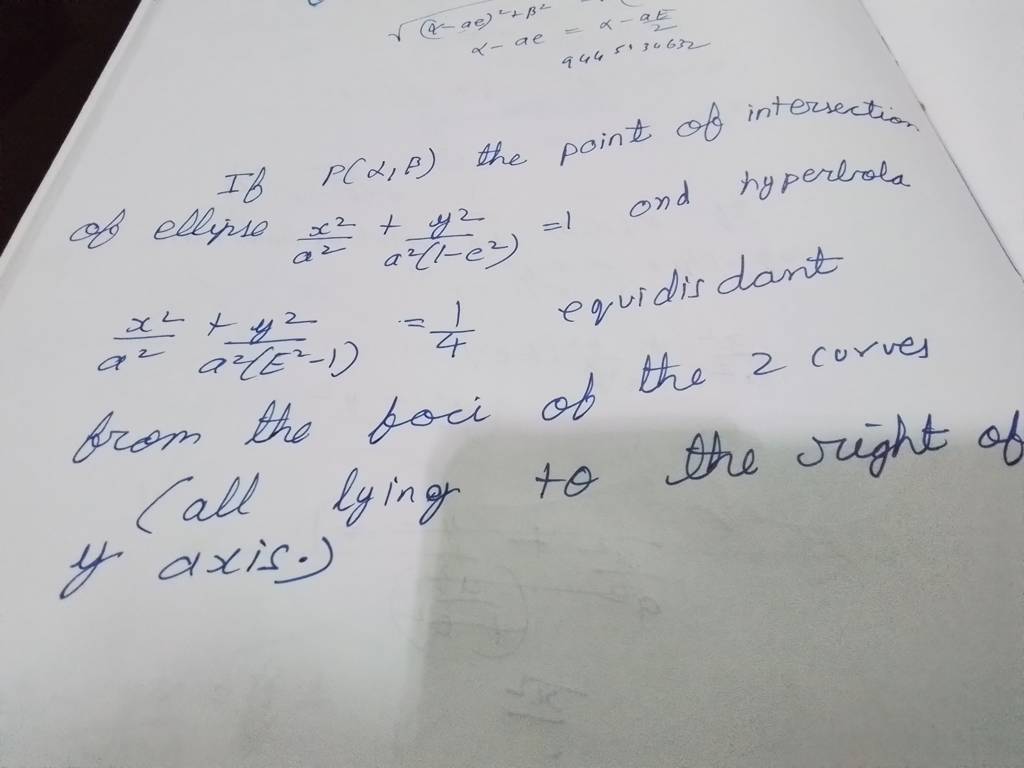 √(α-ae)²+β²
α-ae = α-aE/2
9445134632
If P(α,β) the point of intersection
of ellipse x²/a² + y²/a²(1-e²) =1 and hyperbola
x²/a² + y²/a²(E²-1) = 1/4 equidisdant
from the foci of the 2 curves
(all lying to the right of
y axis.)